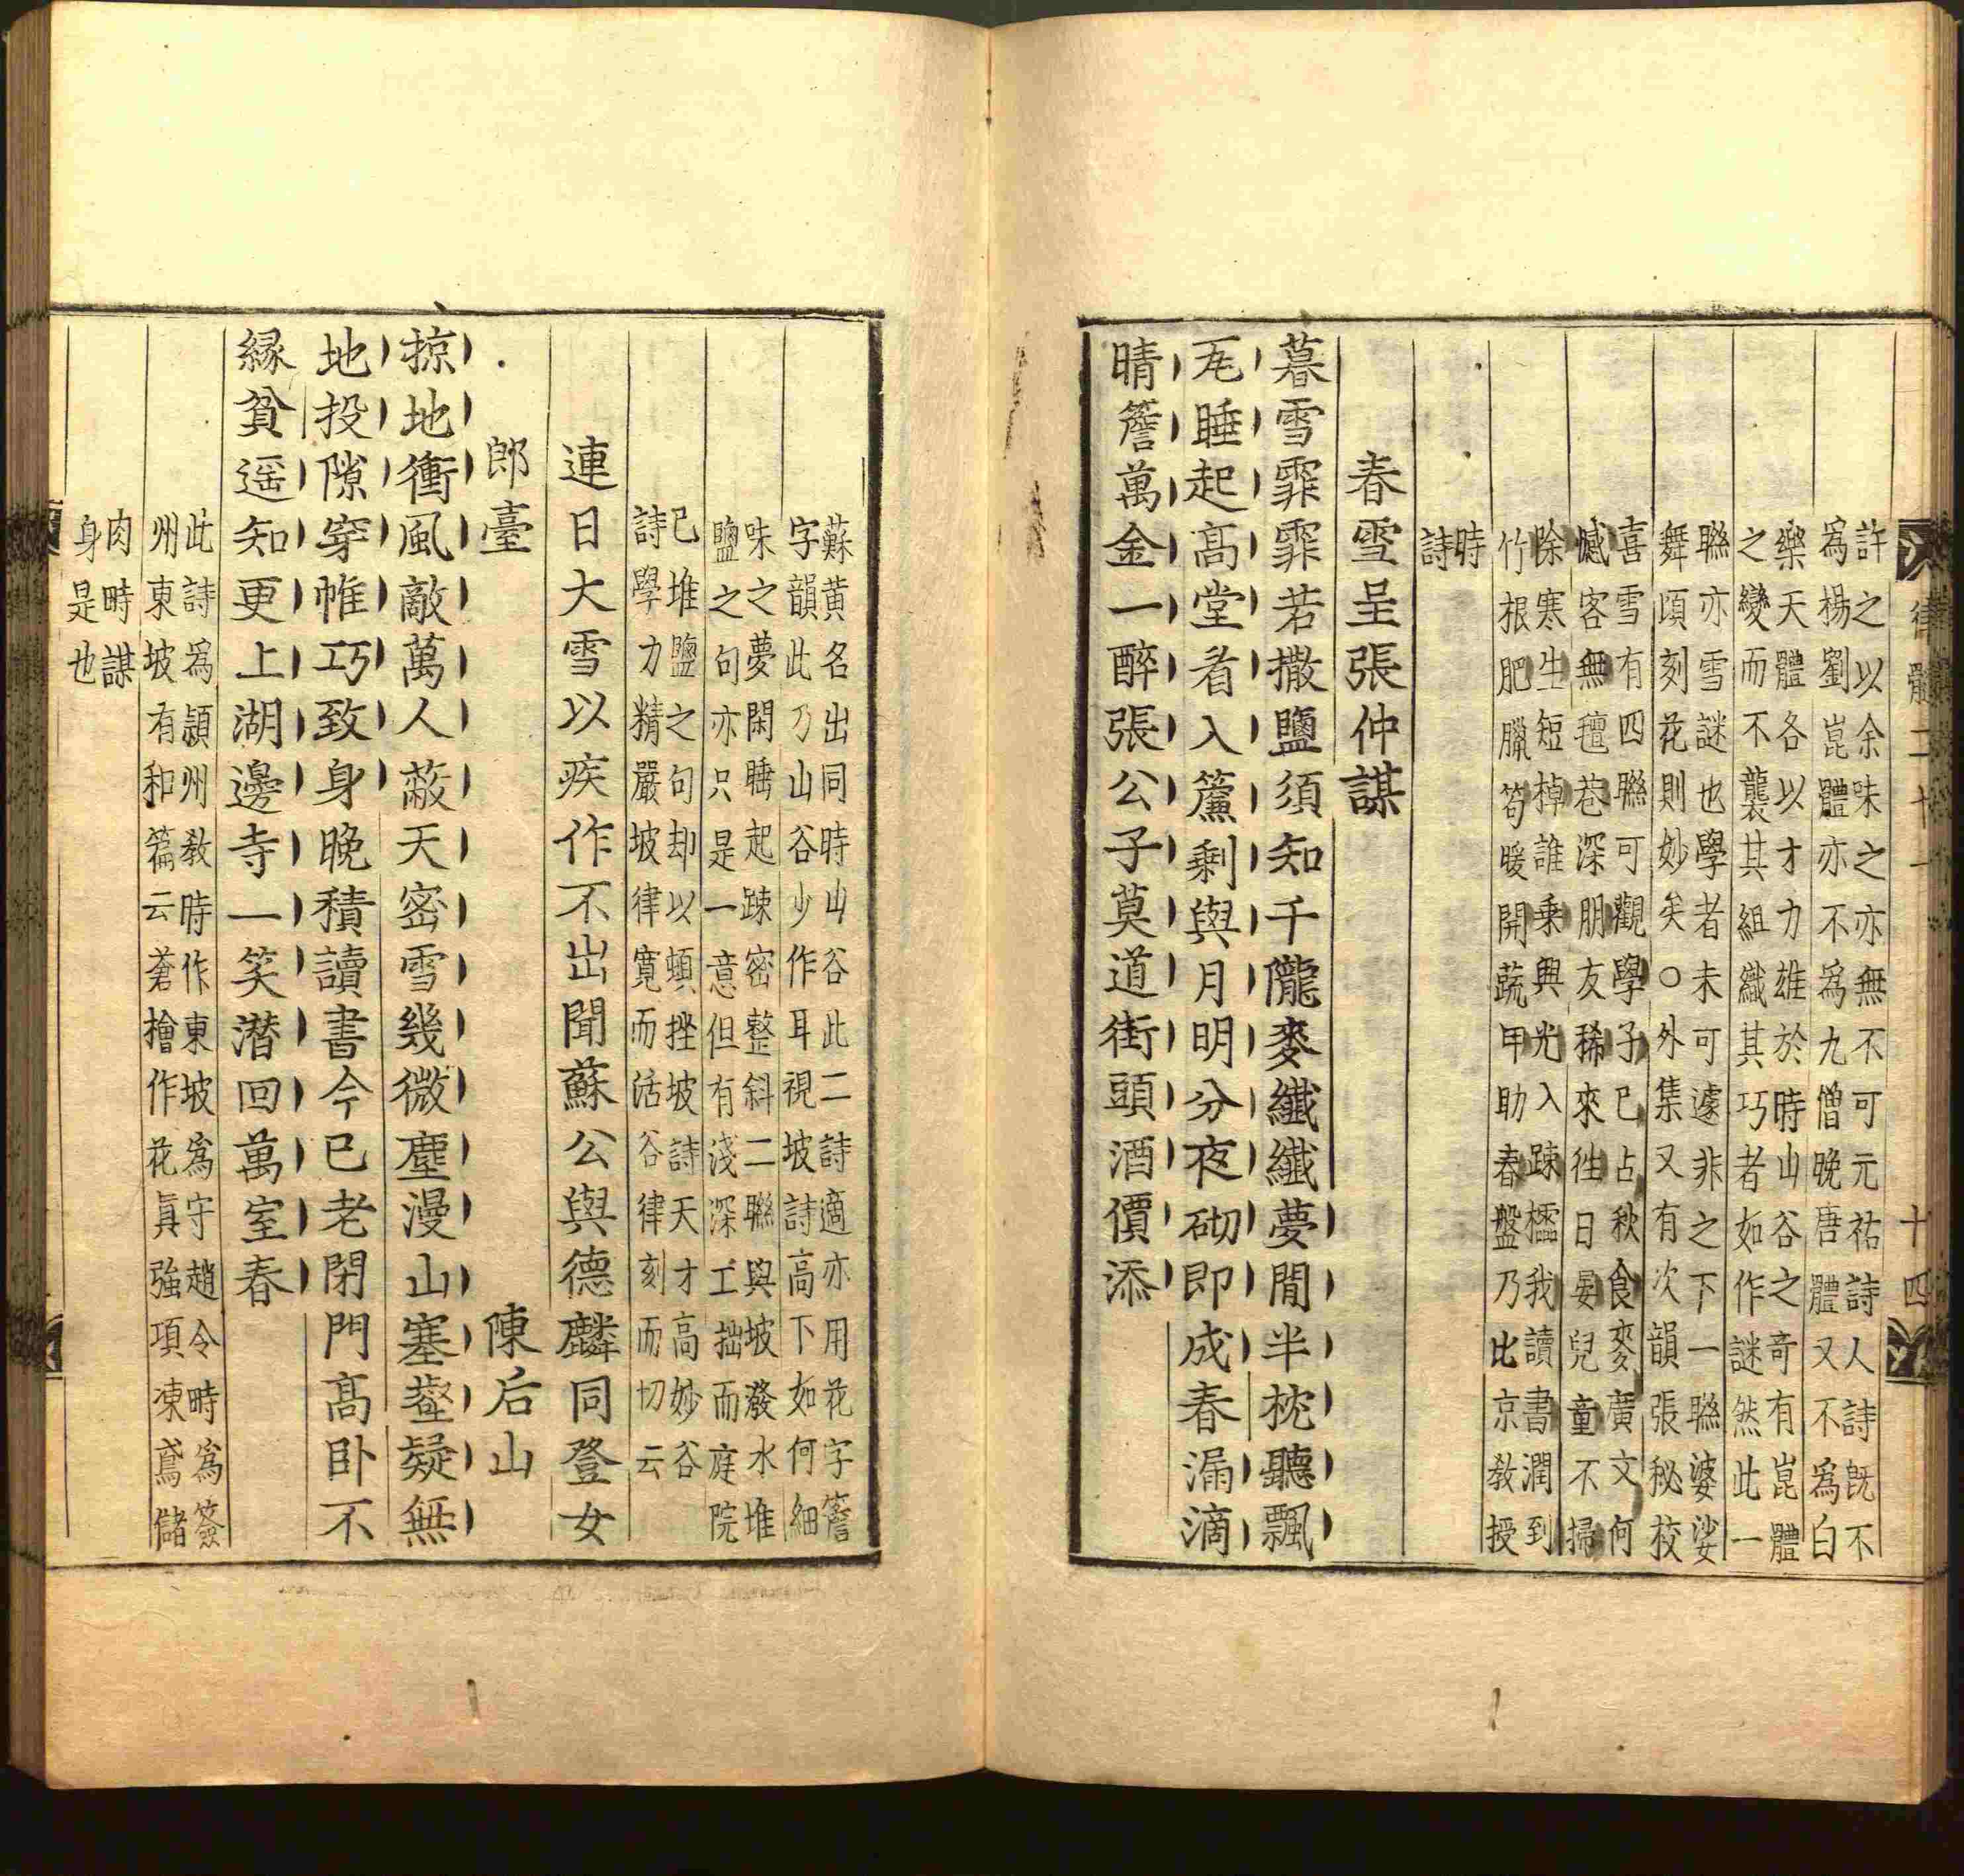 許之以余味之亦無不可元祐詩人詩旣不
爲楊劉崑體亦不爲九僧晚唐體又不爲白
樂天體各以才力雄於時山谷之奇有崑體
之變而不襲其組織其巧者如作謎然此一
聯亦雪謎也學者未可遽非之下一聯婆娑
舞頃刻花則妙矣○外集又有次韻張秘校
喜雪有四聯可觀學子已占秋食麥廣文何
憾客無氊巷深朋友稀來徃日晏兒童不掃
除寒生短棹誰乗興光入踈櫺我讀書潤到
竹根肥臘筍暖開蔬甲助春盤乃比京敎授
時
詩
春雪呈張仲謀
暮雪霏霏若撒鹽須知千隴麥纖纖夢閒半枕聽飄
瓦睡起髙堂看入簾剩與月明分夜砌即成春漏滴
晴簷萬金一醉張公子莫道街頭酒價添
律體二十一
十四
蘇黄名出同時山谷此二詩適亦用花字簷
字韻此乃山谷少作耳視坡詩高下如何細
味之夢閑睡起踈密整斜二聯與坡潑水堆
鹽之句亦只是一意但有淺深工拙而庭院
已堆鹽之句却以頓挫坡詩天才高妙谷
詩學力精嚴坡律寛而活谷律刻而切云
連日大雪以疾作不出聞蘇公與德麟同登女
郎臺
陳后山
掠地衝風敵萬人蔽天密雪幾微塵漫山塞壑疑無
地投隙穿帷巧致身晚積讀書今已老閉門髙卧不
縁貧遥知更上湖邊寺一笑潜回萬室春
此詩爲潁州敎時作東坡爲守趙令時爲簽
州東坡有和篇云蒼檜作花眞強項凍鳶儲
肉時謀
身是也